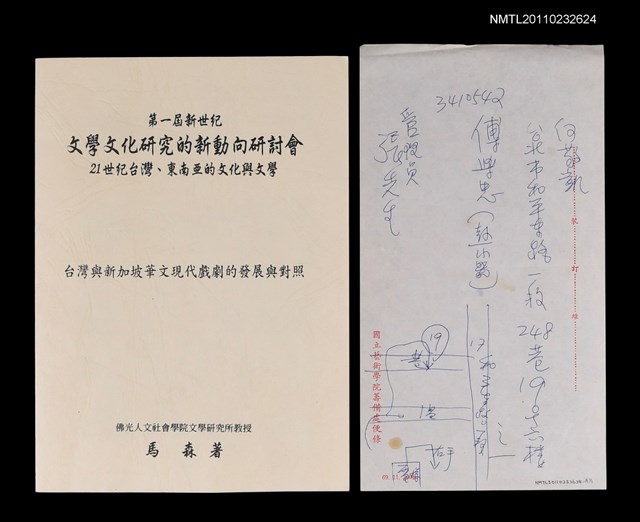 NMTL20110232624
第一屆新世紀
文學文化研究的新動向研討會
21世紀台灣、東南亞的文化與文學
台灣與新加坡華文現代戲劇的發展與對照
佛光人文社會學院文學研究所教授
馬森著
台北市和平東路一段248巷19號六樓
傅學忠
3410542
管理員
張先生
國立藝術學院籌備處便條
19
巷
右手
號
訂
線